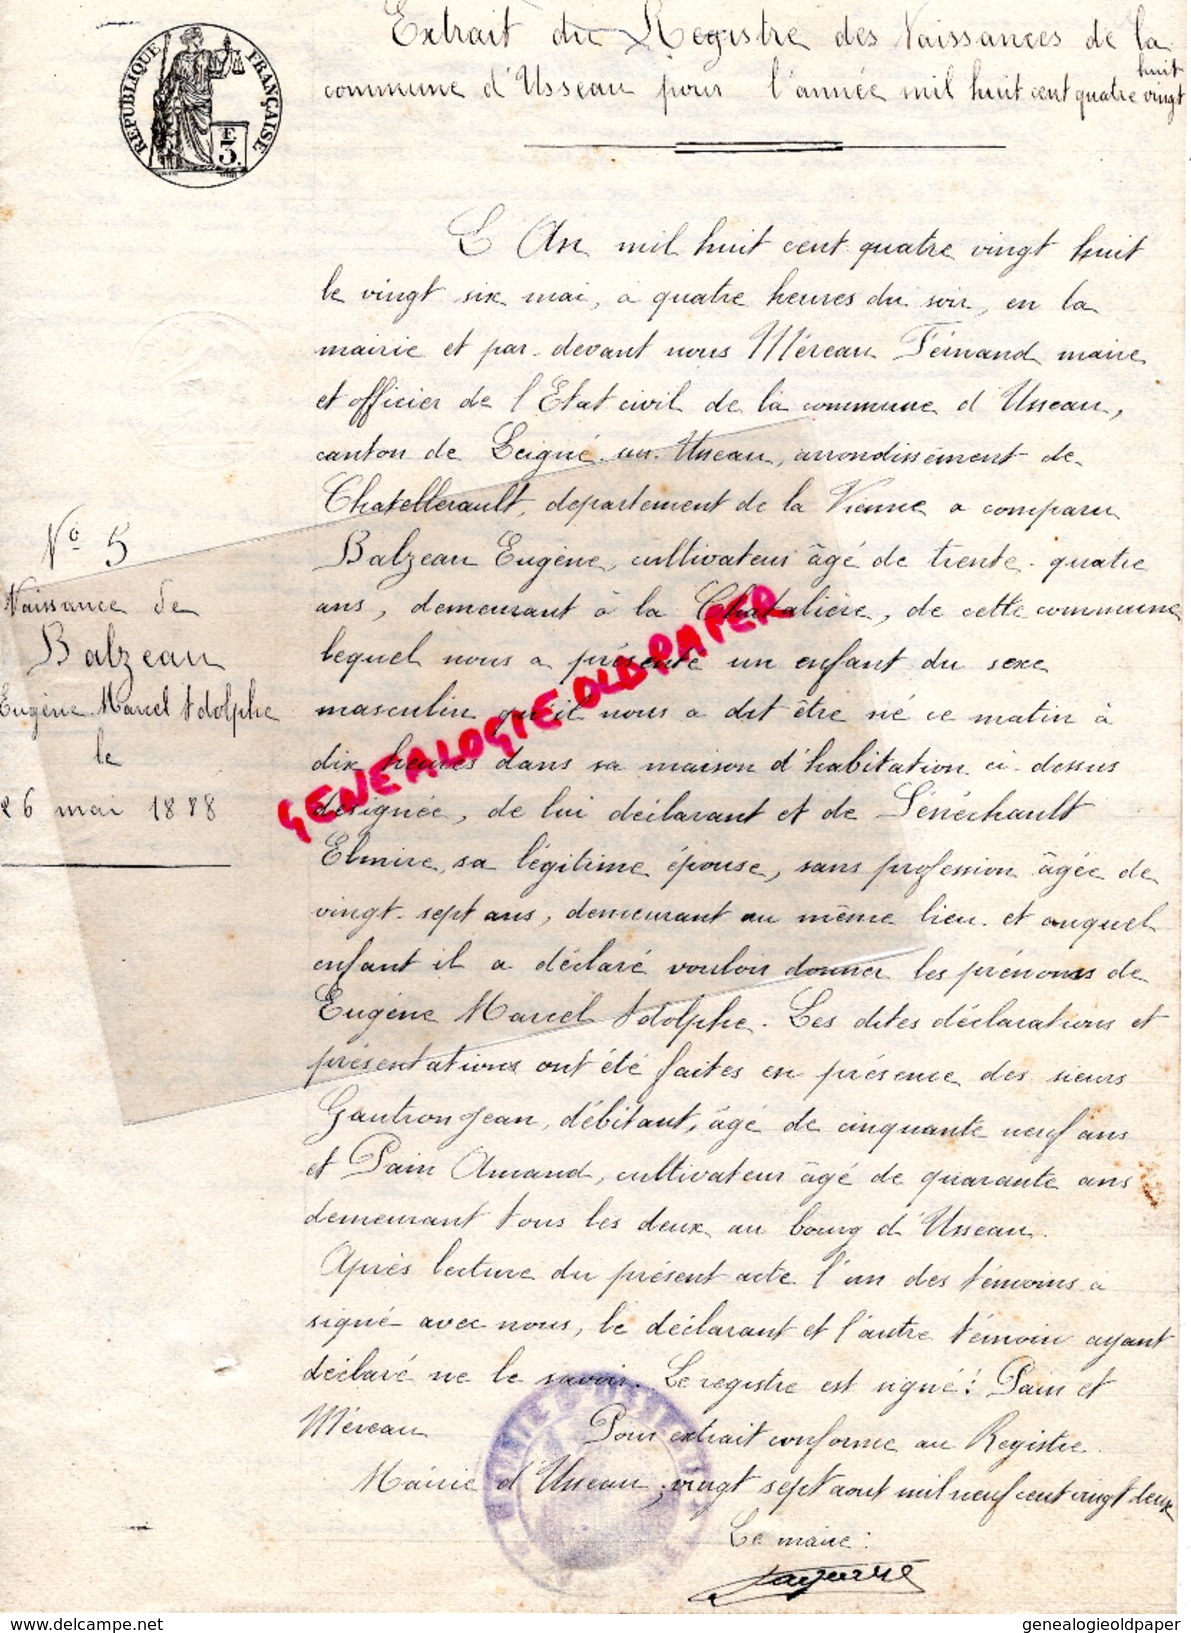 Extrait du Registre des Naissances de la
commune d'Usseau pour l'année mil huit cent quatre vingt huit
RÉPUBLIQUE FRANÇAISE
F
3
L'An mil huit cent quatre vingt huit
le vingt six mai, à quatre heures du soir, en la
mairie et par-devant nous Méreau Fernand maire
et officier de l'Etat civil de la commune d'Usseau,
canton de Leigné-sur-Usseau, arrondissement de
Chatellerault, département de la Vienne a comparu
Balzeau Eugène, cultivateur âgé de trente-quatre
ans, demeurant à la Chatalière, de cette commune
lequel nous a présenté un enfant du sexe
masculin qu'il nous a dit être né ce matin à
dix heures dans sa maison d'habitation ci-dessus
désignée, de lui déclarant et de Sénéchault
Elmire, sa légitime épouse, sans profession âgée de
vingt-sept ans, demeurant au même lieu et auquel
enfant il a déclaré vouloir donner les prénoms de
Eugène Marcel Adolphe. Les dites déclarations et
présentations ont été faites en présence des sieurs
Gautron Jean, débitant, âgé de cinquante neuf ans
et Pain Amand, cultivateur âgé de quarante ans
demeurant tous les deux au bourg d'Usseau.
Après lecture du présent acte l'un des témoins a
signé avec nous, le déclarant et l'autre témoin ayant
déclaré ne le savoir. Le registre est signé: Pain et
Méreau
Pour extrait conforme au Registre.
Mairie d'Usseau, vingt sept aout mil neuf cent vingt deux
Le maire:
N° 5
Naissance de
Balzeau
Eugène Marcel Adolphe
le
26 mai 1888
GENEALOGIE OLDPAPER
genealogieoldpaper